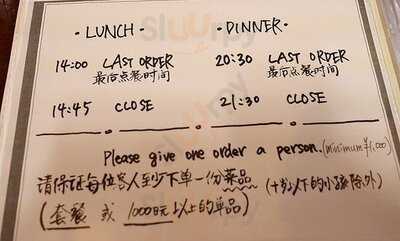 · LUNCH ·
· DINNER ·
14:00 LAST ORDER
最后点餐时间
20:30 LAST ORDER
最后点餐时间
14:45 CLOSE
21:30 CLOSE
Please give one order a person. (minimum ¥1,000)
请保证每位客人至少下单一份菜品 (十岁以下的小孩除外)
(套餐 或 1000日元以上的单品)
Sluurpy